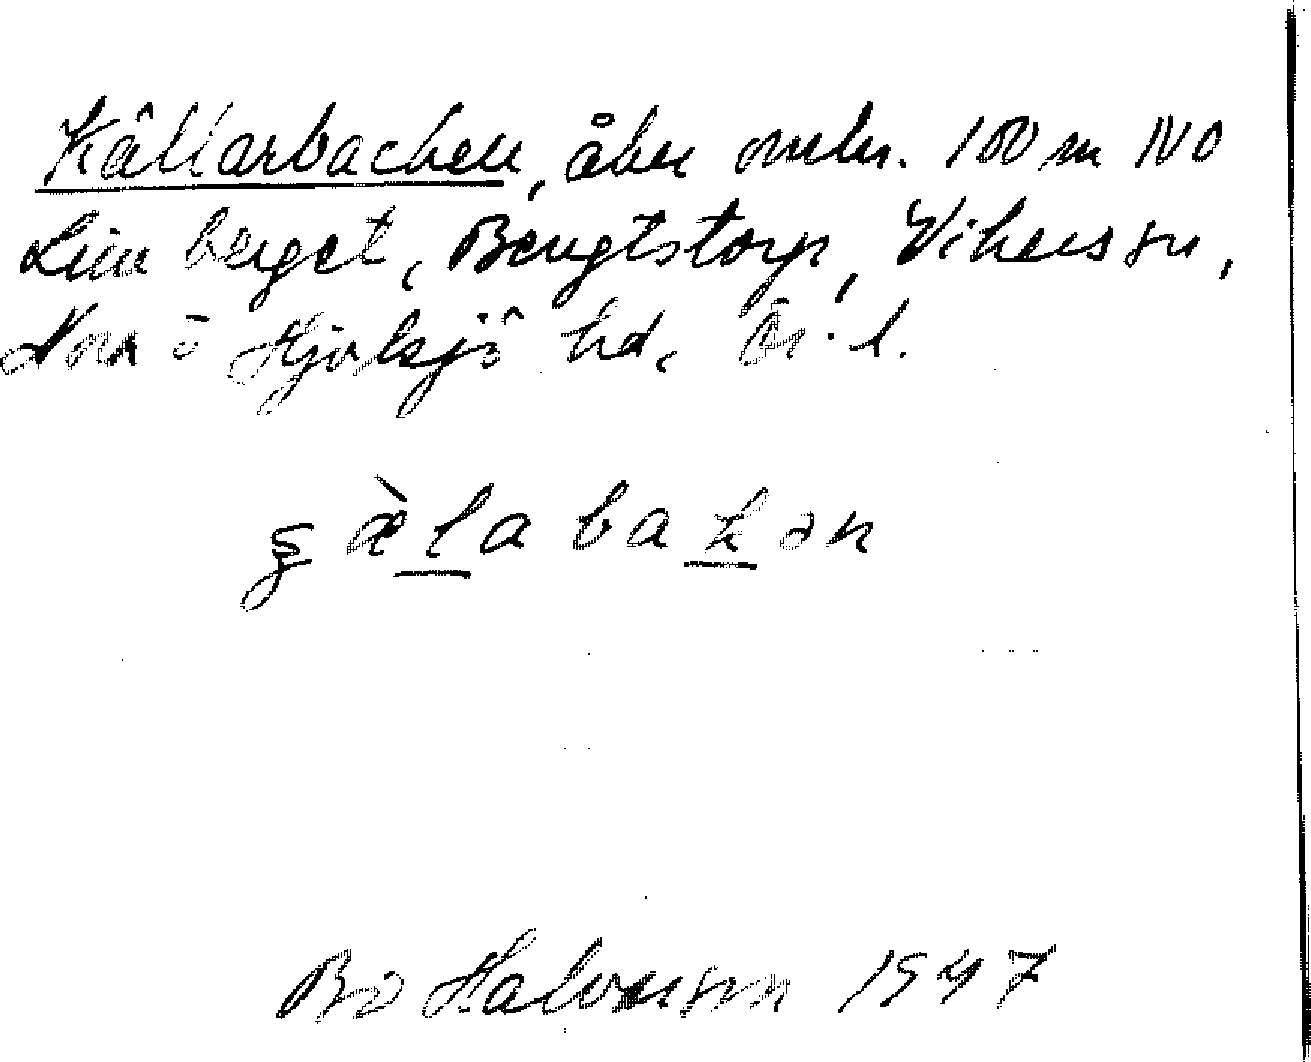 Källarbacken, åker omkr. 100 m NO
Limberget, Bengtstorp, Vikers sn,
Nora o Hjulsjö hd, Ör. l.
ʂæ̀labakən
Bo Halvarson 1947